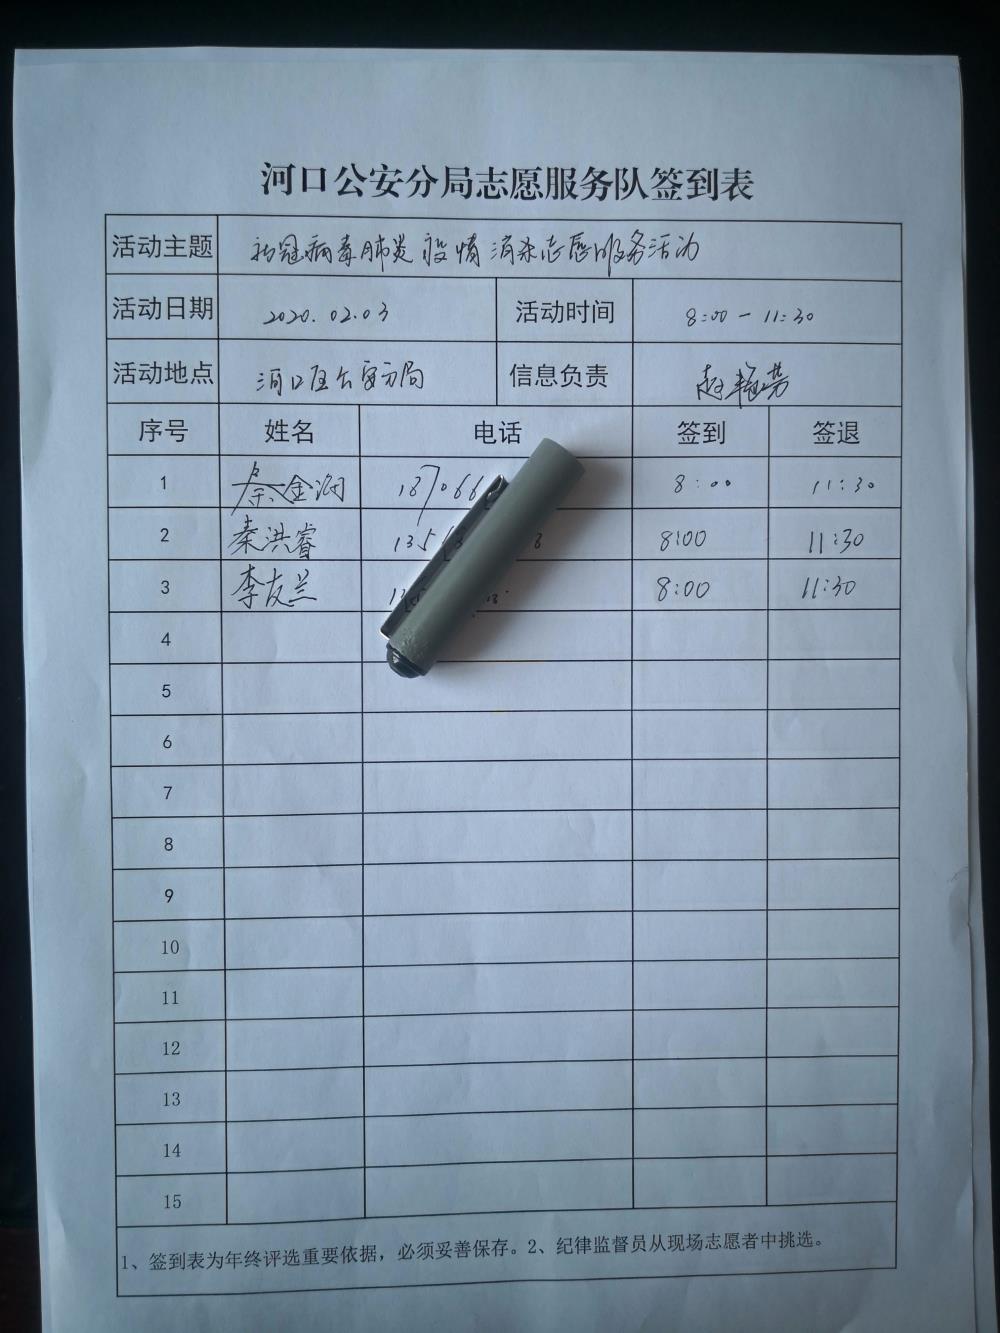 河口公安分局志愿服务队签到表
活动主题 新冠病毒肺炎疫情消杀志愿服务活动
活动日期 2020.02.03 活动时间 8:00-11:30
活动地点 河口区公安分局 信息负责
序号 姓名 电话 签到 签退
1 秦金润 187066 8:00 11:30
2 秦洪睿 135 8 8:00 11:30
3 李友兰 8:00 11:30
4
5
6
7
8
9
10
11
12
13
14
15
1、签到表为年终评选重要依据，必须妥善保存。2、纪律监督员从现场志愿者中挑选。